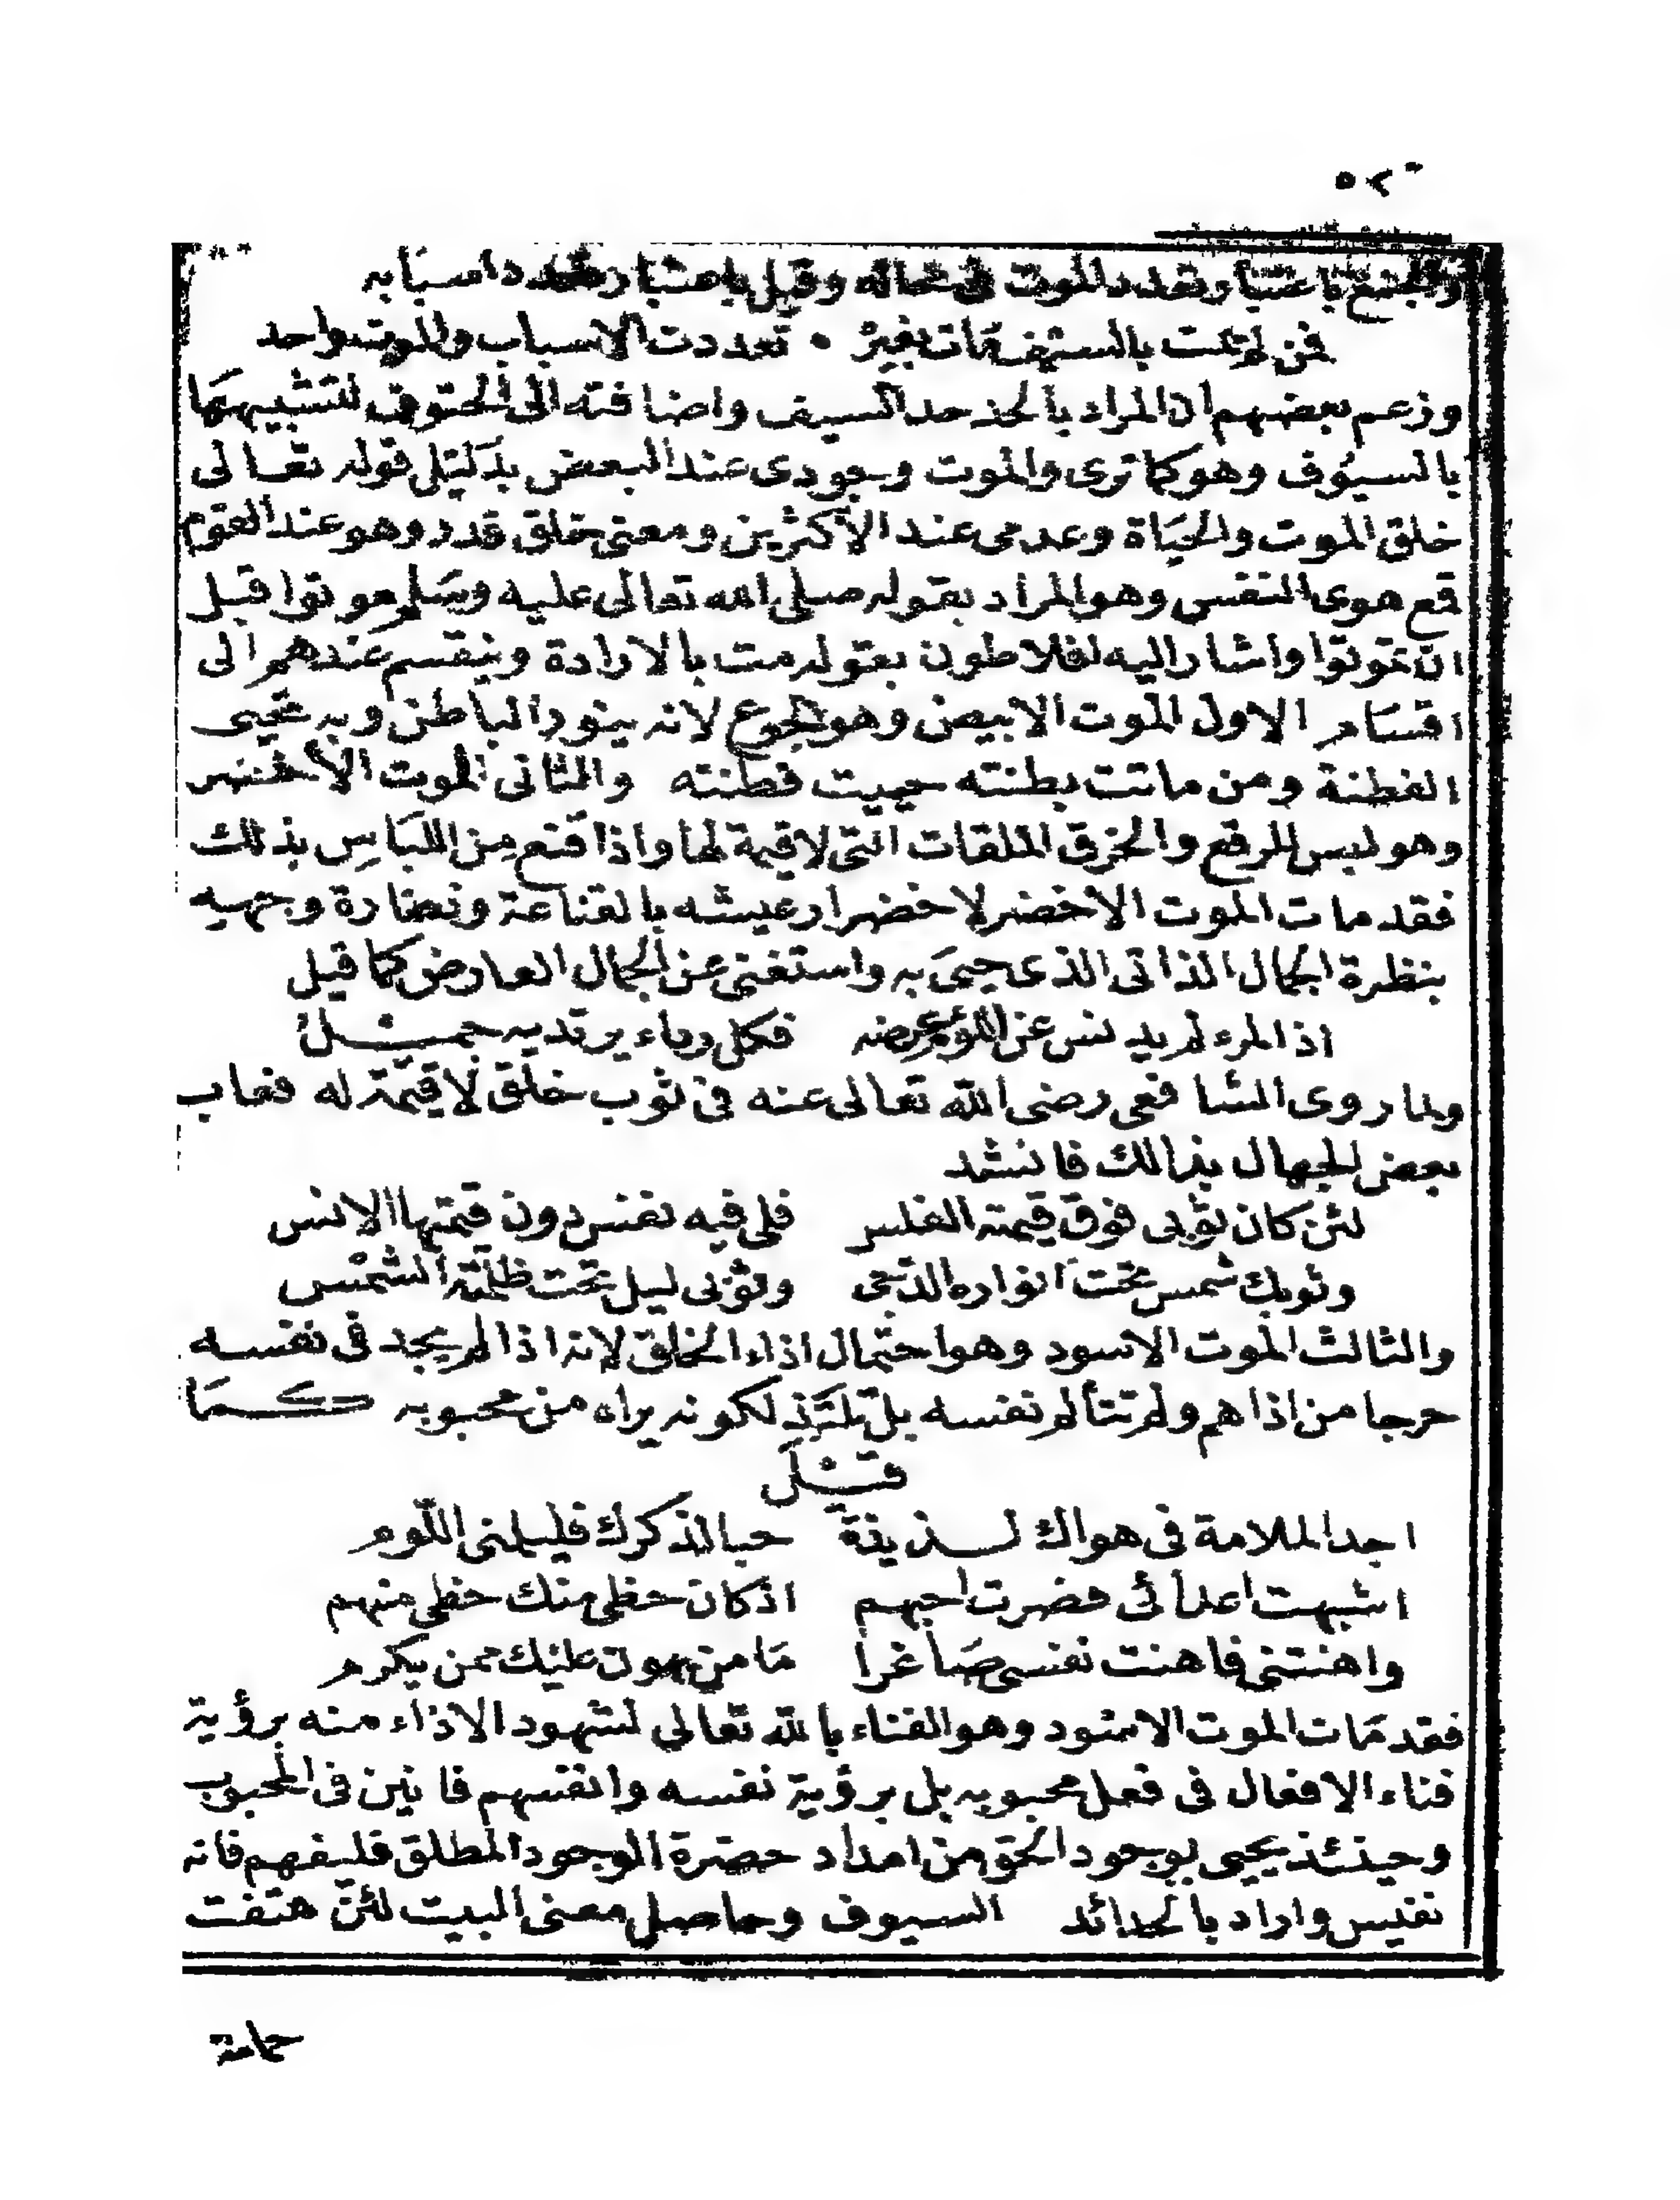 ٥٢٠
والجمع باعتبار تعدد الموت فى محاله وقيل باعتبار تعدد اسبابه
فمن لم يمت بالسيف مات بغيره • تعددت الاسباب والموت واحد
وزعم بعضهم ان المراد بالحد حد السيف واضافته الى الحتوف لتشبيهها
بالسيوف وهو كما ترى والموت وجودى عند البعض بدليل قوله تعالى
خلق الموت والحياة وعدمى عند الاكثرين ومعنى خلق قدر وهو عند القوم
قمع هوى النفس وهو المراد بقوله صلى الله تعالى عليه وسلم موتوا قبل
ان تموتوا واشار اليه افلاطون بقوله مت بالارادة وينقسم عندهم الى
اقسام الاول الموت الابيض وهو الجوع لانه ينور الباطن وبه تحيى
الفطنة ومن ماتت بطنته حييت فطنته والثانى الموت الاخضر
وهو لبس المرقع والخرق الملقات التى لا قيمة لها واذا قنع من اللباس بذلك
فقد مات الموت الاخضر لاخضرار عيشه بالقناعة ونضارة وجهه
بنظرة الجمال الذاتى الذى حيى به واستغنى عن الجمال العارض كما قيل
اذا المرء لم يدنس عن اللؤم عرضه فكل رداء يرتديه جميل
ولما روى الشافعى رضى الله تعالى عنه فى ثوب خلق لا قيمة له فعاب
بعض الجهال بذالك فانشد
لئن كان ثوبى فوق قيمته الفلس فلى فيه نفس دون قيمتها الانس
وثوبك شمس تحت انواره الدجى وثوبى ليل تحت ظلمته الشمس
والثالث الموت الاسود وهو احتمال اذاء الخلق لانه اذا لم يجد فى نفسه
حرجا من اذاهم ولم تتألم نفسه بل تلتذ لكونه يراه من محبوبه كما
قيل
اجد الملامة فى هواك لذيذة حبا لذكرك فليلمنى اللوم
اشبهت اعدائى فصرت احبهم اذ كان حظى منك حظى منهم
واهنتنى فاهنت نفسى صاغرا ما من يهون عليك ممن يكرم
فقد مات الموت الاسود وهو الفناء بالله تعالى لشهود الاذاء منه برؤية
فناء الافعال فى فعل محبوبه بل برؤية نفسه وانفسهم فانين فى المحبوب
وحينئذ يحيى بوجود الحق من امداد حضرة الوجود المطلق فليفهم فانه
نفيس واراد بالحدائد السيوف وحاصل معنى البيت لئن هتفت
حمامة